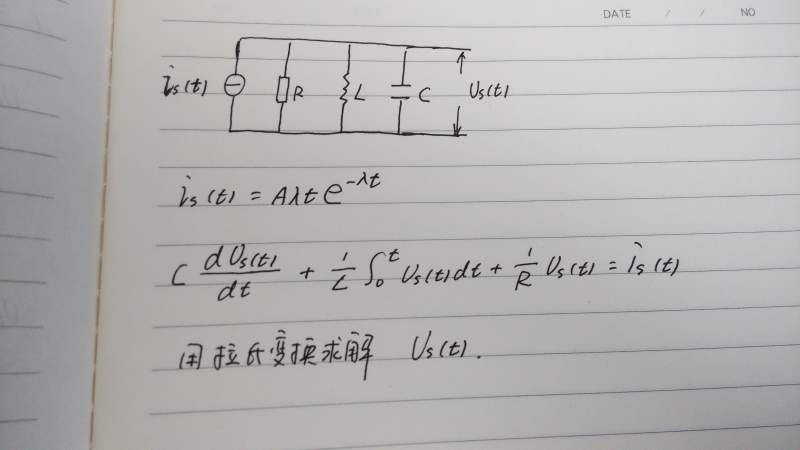 DATE / / NO
is(t) R L C Us(t)
is(t) = Aλt e^{-λt}
C dUs(t)/dt + 1/L ∫₀ᵗ Us(t)dt + 1/R Us(t) = is(t)
用拉氏变换求解 Us(t).